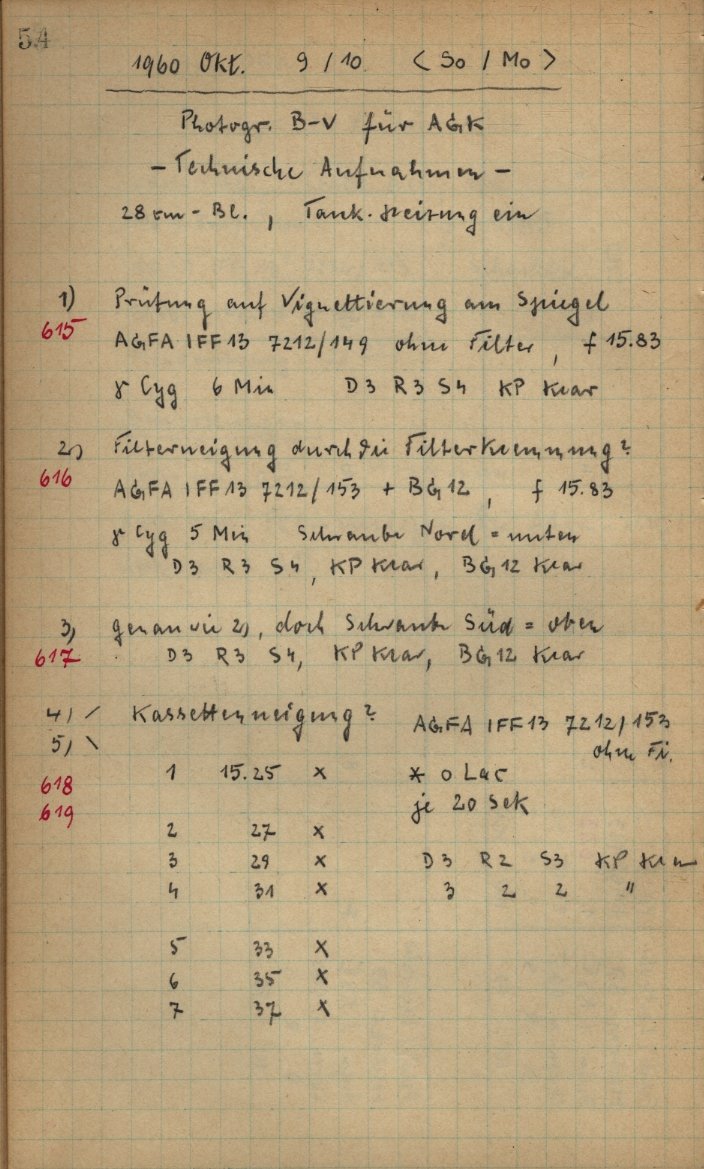 54
1960 Okt. 9/10 <So/Mo>
Photogr. B-V für AGK
- Technische Aufnahmen -
28 cm - Bl., Tank-Heizung ein
1) Prüfung auf Vignettierung am Spiegel
615 AGFA IFF 13 7212/149 ohne Filter, f 15.83
γ Cyg 6 Min D3 R3 S4 KP klar
2) Filterneigung durch die Filterklemmung?
616 AGFA IFF 13 7212/153 + BG 12, f 15.83
γ Cyg 5 Min Schraube Nord = unten
D3 R3 S4, KP klar, BG 12 klar
3) genau wie 2), doch Schraube Süd = oben
617 D3 R3 S4, KP klar, BG 12 klar
4) / Kassettenneigung? AGFA IFF 13 7212/153
5) \ ohne Fi.
618 1 15.25 x * 0 Lac
619 je 20 Sek
2 27 x
3 29 x D3 R2 S3 KP klar
4 31 x 3 2 2 "
5 33 x
6 35 x
7 37 x